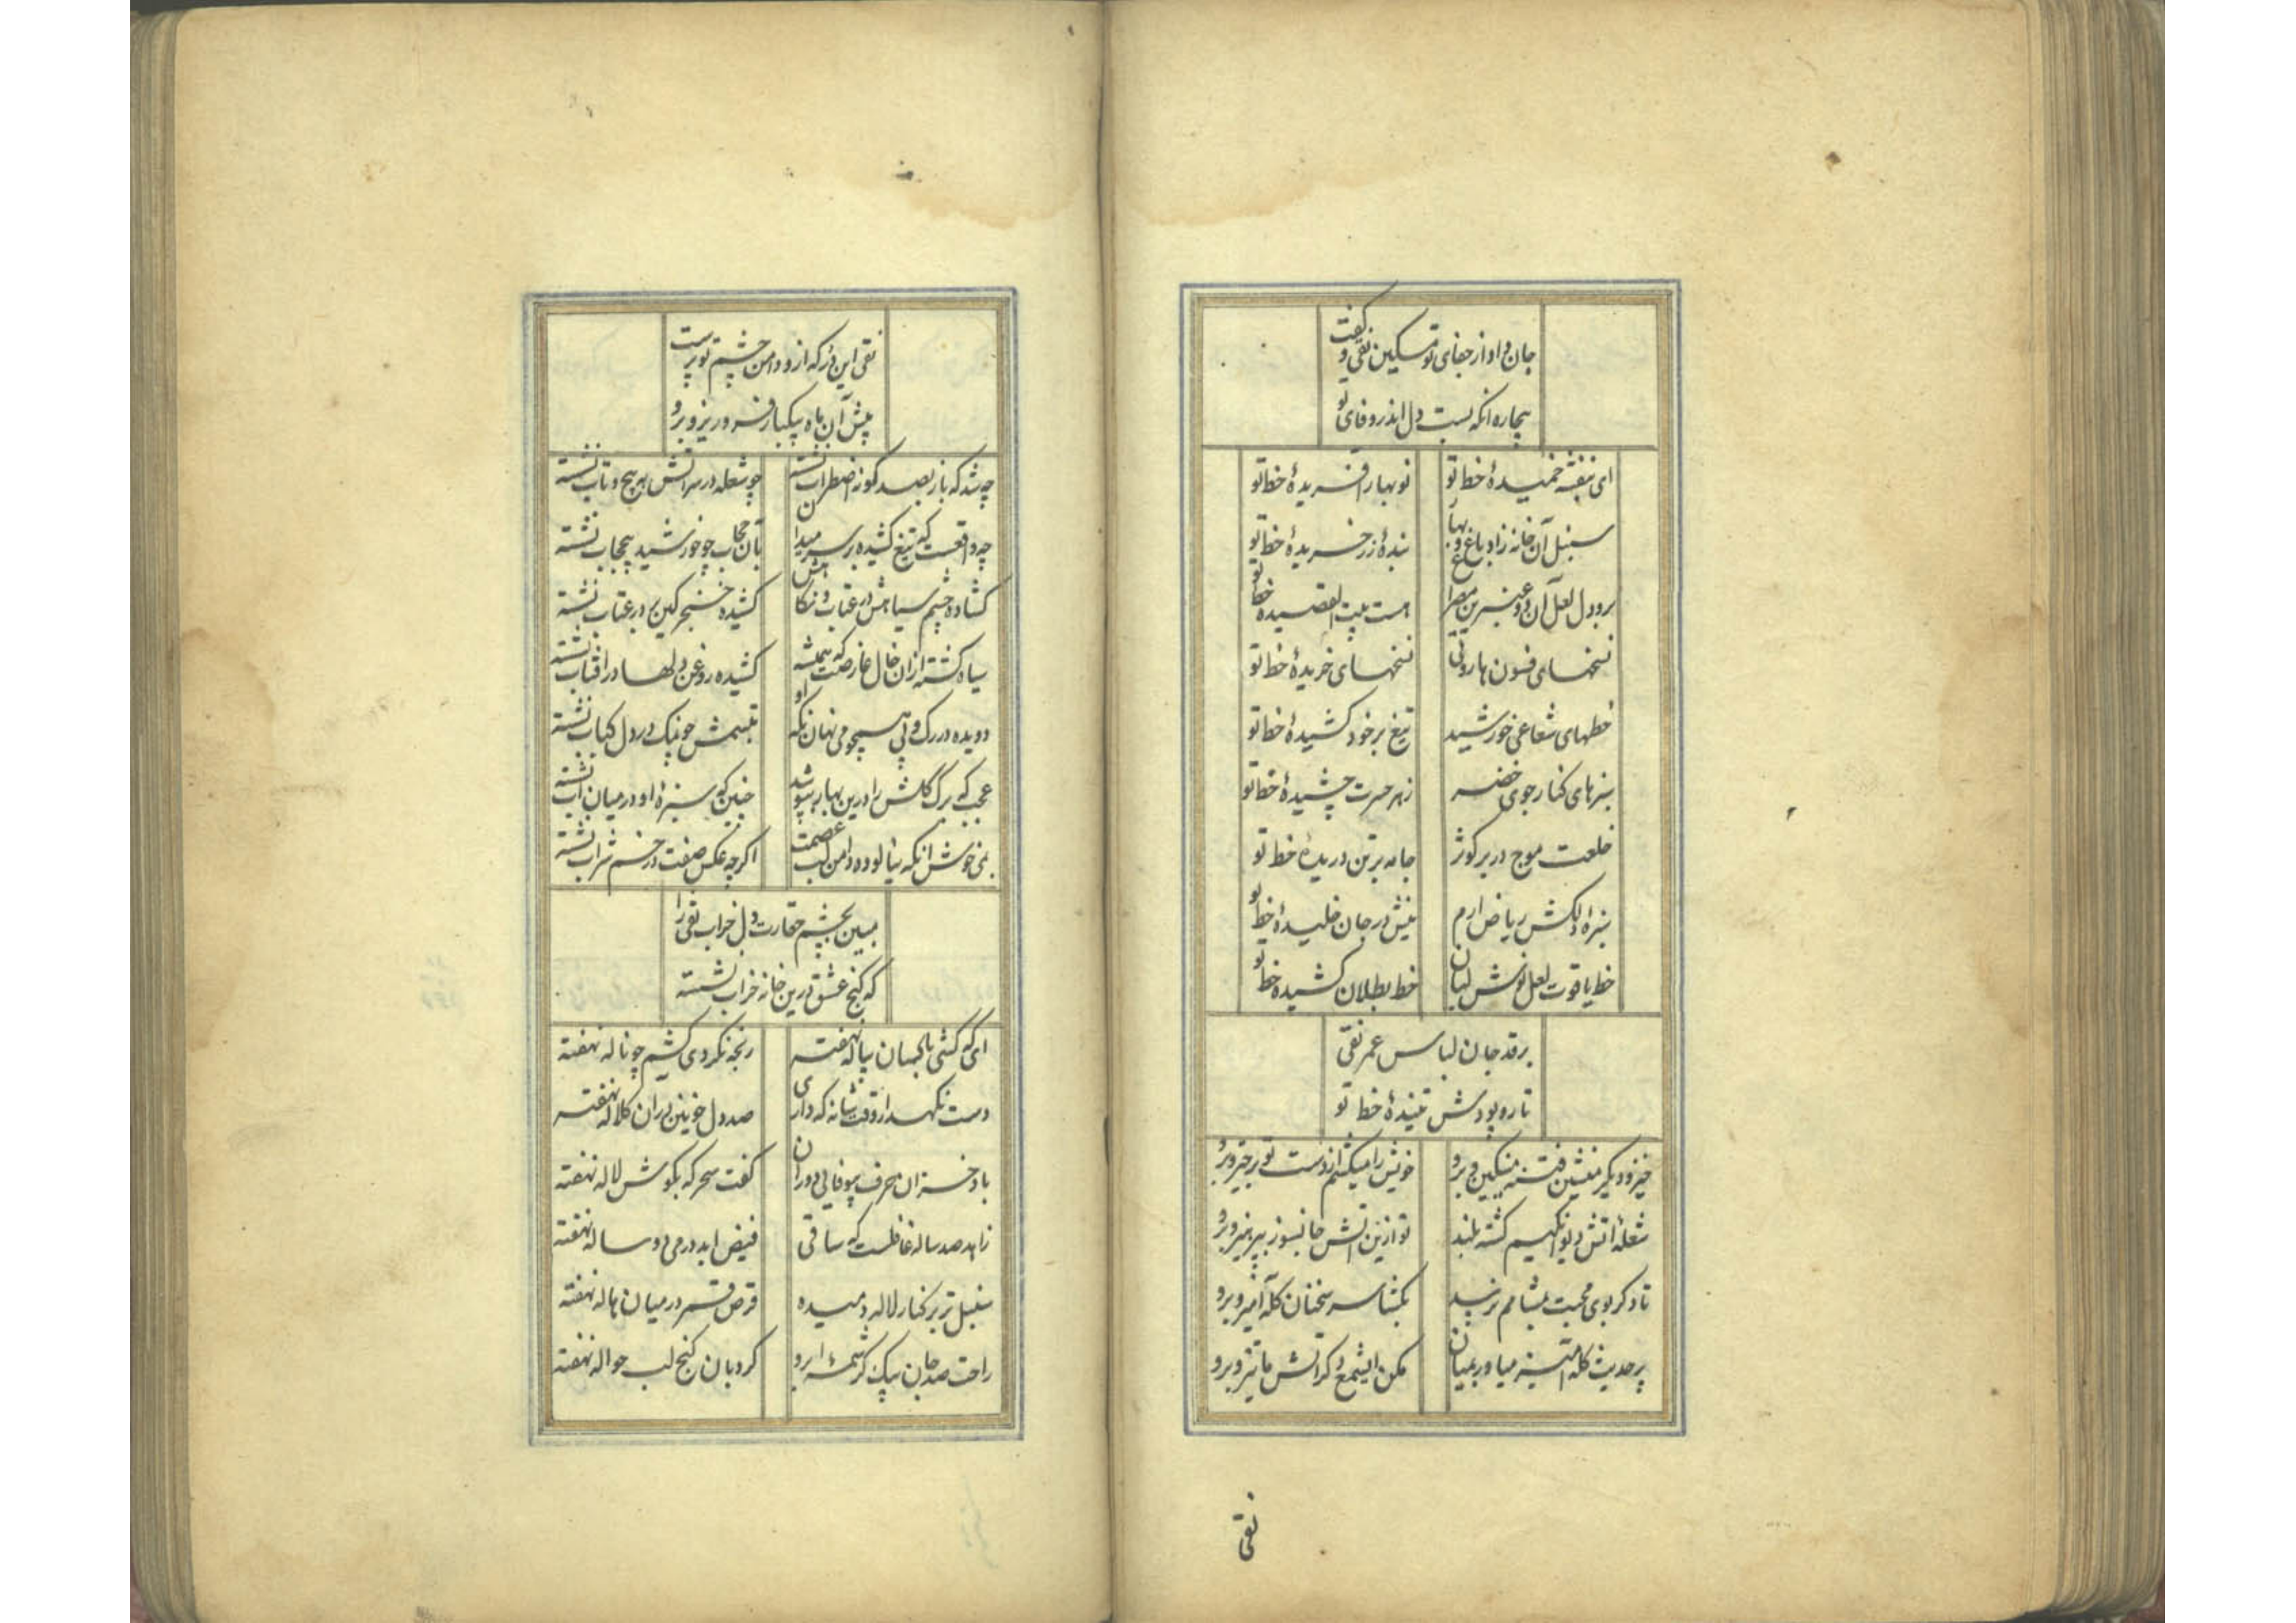 جان داد از جفای تو مسکین نقی و گفت
بیچاره انکه بست دل اندر وفای تو
ای بنفشه خمیدهٔ خط تو نوبهار افریدهٔ خط تو
سنبل آن خانه زاد باغ و بهار بندهٔ زر خریدهٔ خط تو
برودل لعل آن دو عنبرین مصرا هست بیت القصیده خط تو
نسخهای فسون هاروتی نسخهای خریدهٔ خط تو
خطهای شعاعی خورشید تیغ بر خود کشیدهٔ خط تو
سبزهای کنار جوی خضر زهر حسرت چشیدهٔ خط تو
خلعت موج در بر کوثر جامه بر تن دریدهٔ خط تو
سبزه دلکش ریاض ارم نیش در جان خلیدهٔ خط تو
خط یاقوت لعل نوش لبان خط بطلان کشیده خط تو
برقد جان لباس عمر نقی
تار و پودش تنیدهٔ خط تو
خیز و دیگر منشین فتنه مینگیز و برو خویش را میکشم از دست تو برخیز و برو
شعلهٔ اتش دیوانگیم گشته بلند تو ازین اتش جانسوز بپرهیز و برو
تا دگر بوی محبت بمشامم نرسد بگشا سر سخنان گله آمیز و برو
پر حدیث گله امیز میاور بمیان مکن ایشمع دگر اتش ما تیز و برو
نقی
نقی این در که ازو دامن چشم تو پرست
پیش آن ماه بیکبار فرو ریز و برو
چه شد که باز بصد گونه اضطراب نشسته چو شعله در سر اتش به پیچ و تاب نشسته
چه واقعست که تیغ کشیده بر سر میدان بان حجاب چو خورشید بیحجاب نشسته
گشاده چشم سیاهش در عتاب و نگاهش کشیده خنجر کین بر در عتاب نشسته
سیاه گشته ازان خال عارضت که همیشه کشیده روغن دلها در افتاب نشسته
دویده در رگ و پی همچو می نهان نگه او تبسمش چو نمک در دل کباب نشسته
عجب که برگ گلش را درین بهار بپوشد چنین که سبزهٔ او در میان اب نشسته
بمی خوش انکه نیالوده دامن لب عصمت اگر چه عکس صفت در خم شراب نشسته
مبین بچشم حقارت دل خراب نقی را
که گنج عشق درین خانه خراب نشسته
ای که گشی بالبسان پیاله نهفته رنجه نکردی کشیم چو ناله نهفته
دست نگهدار وقت شانه که داری صد دل خونین در آن کلاله نهفته
باد خزان حرف بیوفایی دوران گفت سحر که بگوش لاله نهفته
زاهد صد ساله غافلست که ساقی فیض ابد در می دو ساله نهفته
سنبل تر بر کنار لاله دمیده قرص قمر در میان هاله نهفته
راحت صد جان بیک کرشمهٔ ابرو کرد بان کنج لب حواله نهفته